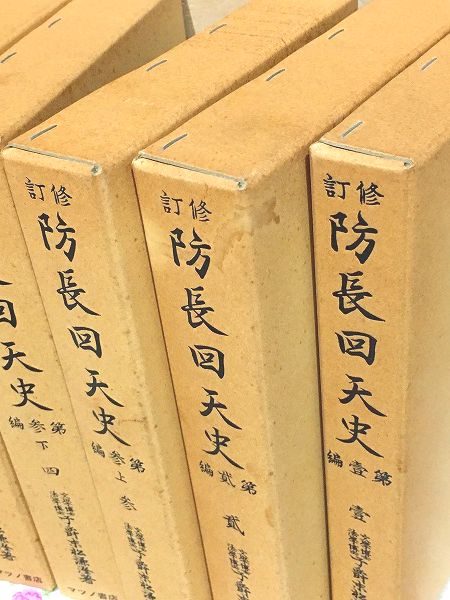 修訂
防長回天史
第壹編
壹
文學博士
法學博士
子爵末松
修訂
防長回天史
第貳編
貳
文學博士
法學博士
子爵末松謙
修訂
防長回天史
第参編上
参
文學博士
法學博士
子爵末松謙澄著
マツノ書店
回天史
第参編下
四
著
マツノ書店